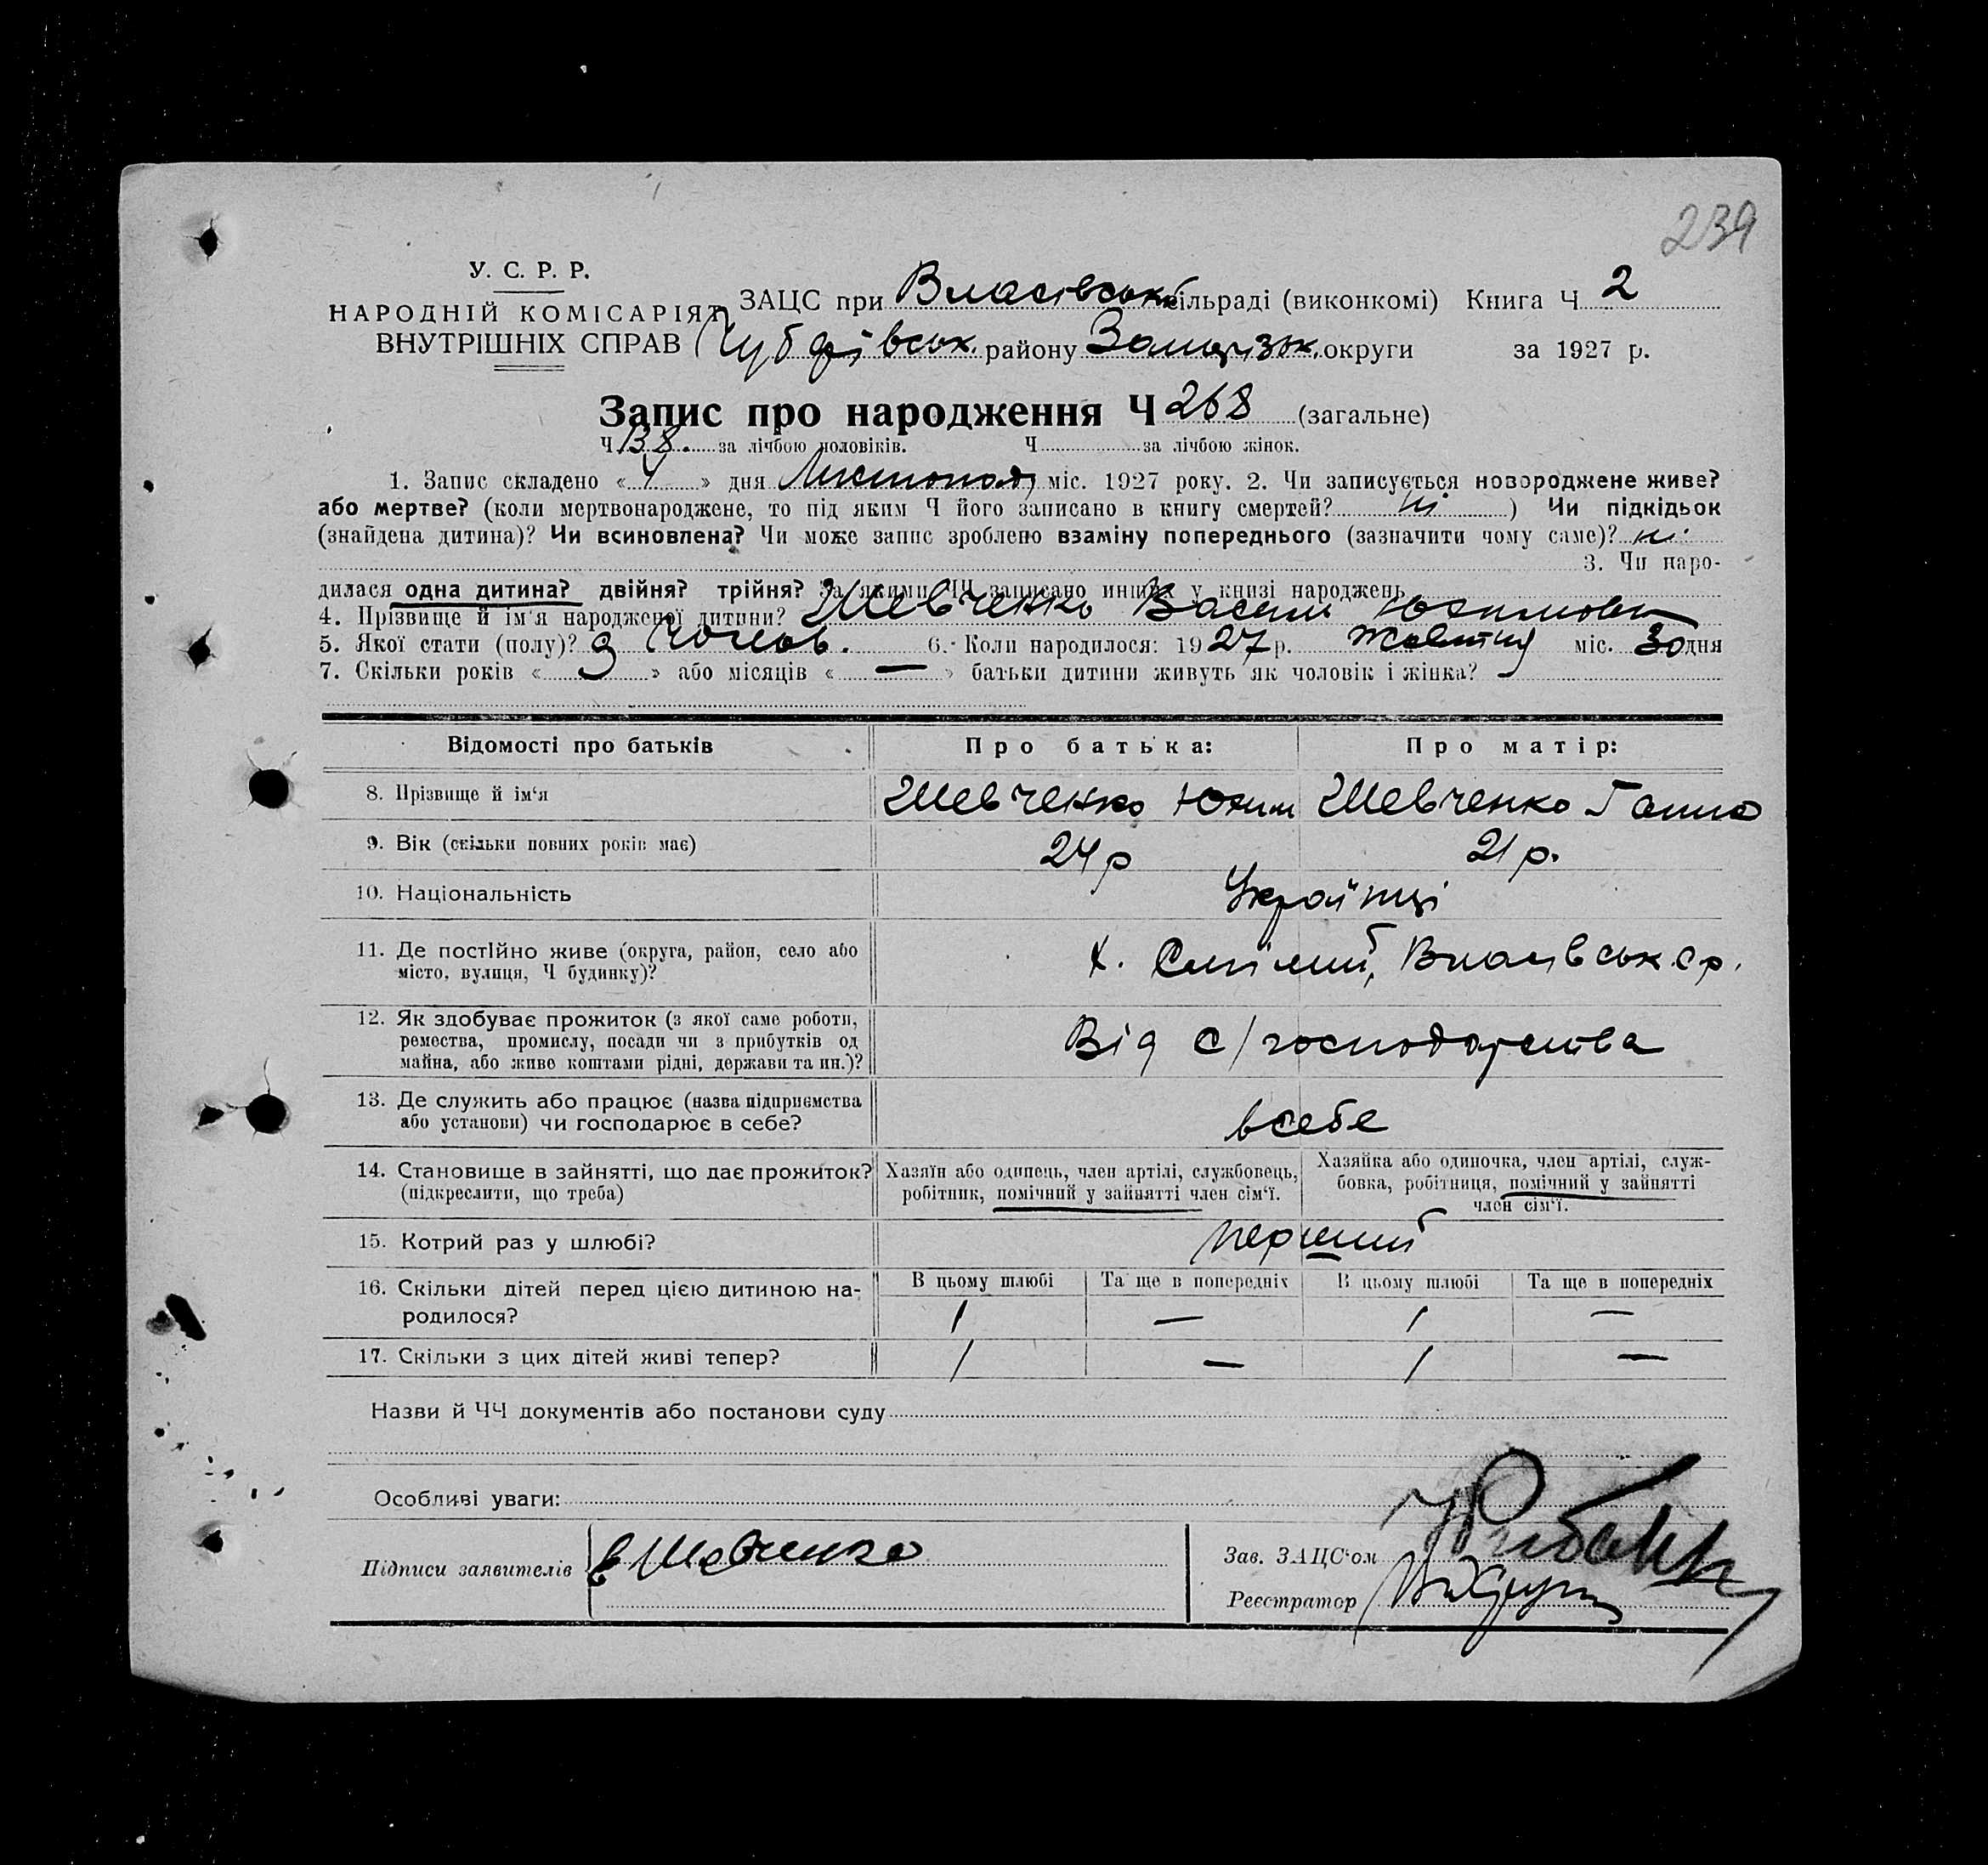 239
У. С. Р. Р.
НАРОДНІЙ КОМІСАРІЯТ
ВНУТРІШНІХ СПРАВ
ЗАЦС при Власівській сільраді (виконкомі) Книга Ч 2
Чубарівськ. району Запорізьк. округи за 1927 р.
Запис про народження Ч 268 (загальне)
Ч 138. за лічбою чоловіків. Ч за лічбою жінок.
1. Запис складено « 4 » дня Листопад міс. 1927 року. 2. Чи записується новороджене живе?
або мертве? (коли мертвонароджене, то під яким Ч його записано в книгу смертей? ні ) Чи підкідьок
(знайдена дитина)? Чи всиновлена? Чи може запис зроблено взаміну попереднього (зазначити чому саме)? ні
3. Чи наро-
дилася одна дитина? двійня? трійня? За якими ЧЧ записано инших у книзі народжень
4. Прізвище й ім'я народженої дитини? Шевченко Василь Юхимович
5. Якої стати (полу)? Чолов. 6. Коли народилося: 1927 р. Жовтня міс. 30 дня
7. Скільки років « 3 » або місяців « — » батьки дитини живуть як чоловік і жінка?
Відомості про батьків Про батька: Про матір:
8. Прізвище й ім'я Шевченко Юхим Шевченко Ганна
9. Вік (скільки повних років має) 24 р 21 р.
10. Національність Українці
11. Де постійно живе (округа, район, село або
місто, вулиця, Ч будинку)? х. Смілий, Власівськ. с р.
12. Як здобуває прожиток (з якої саме роботи,
ремества, промислу, посади чи з прибутків од
майна, або живе коштами рідні, держави та ин.)? Від с/господарства
13. Де служить або працює (назва підприємства
або установи) чи господарює в себе? в себе
14. Становище в зайнятті, що дає прожиток?
(підкреслити, що треба)
Хазяїн або одинець, член артілі, службовець,
робітник, помічний у зайнятті член сім'ї.
Хазяйка або одиночка, член артілі, служ-
бовка, робітниця, помічний у зайнятті
член сім'ї.
15. Котрий раз у шлюбі? перший
16. Скільки дітей перед цією дитиною на-
родилося?
В цьому шлюбі Та ще в попередніх В цьому шлюбі Та ще в попередніх
1 — 1 —
17. Скільки з цих дітей живі тепер? 1 — 1 —
Назви й ЧЧ документів або постанови суду
Особливі уваги:
Підписи заявителів Шевченко
Зав. ЗАЦС'ом
Реєстратор